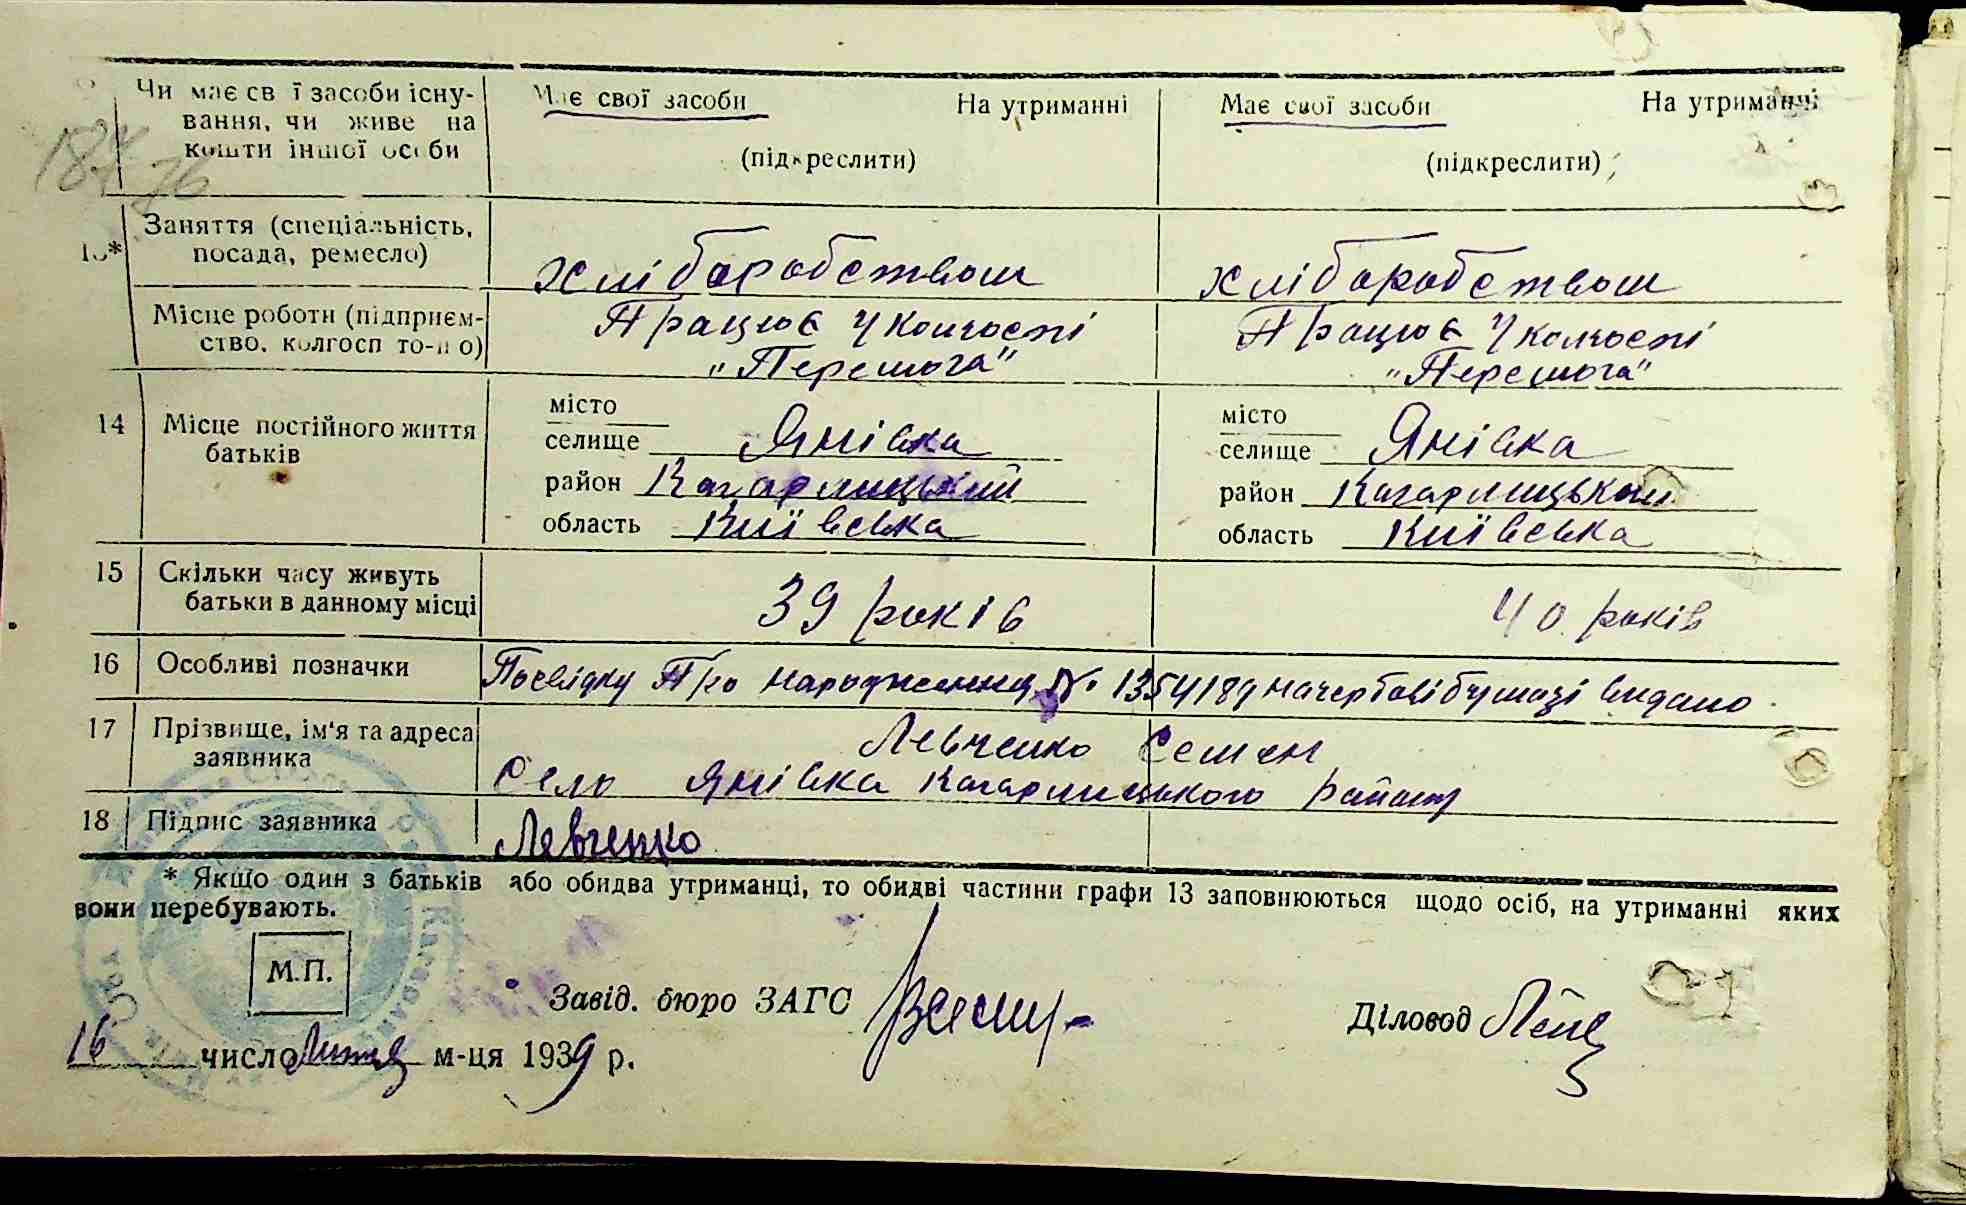 Чи має св ї засоби існу-
вання, чи живе на
кошти іншої особи
Має свої засоби На утриманні
(підкреслити)
Має свої засоби На утриманні
(підкреслити)
13*
Заняття (спеціальність,
посада, ремесло)
хліборобством
хліборобством
Місце роботи (підприєм-
ство, колгосп то-що)
Працює у колгоспі
"Перемога"
Працює у колгоспі
"Перемога"
14
Місце постійного життя
батьків
місто
селище Янівка
район Кагарлицький
область Київська
місто
селище Янівка
район Кагарлицький
область Київська
15
Скільки часу живуть
батьки в данному місці
39 років
40 років
16
Особливі позначки
Посвідку про народження № 1354189 на гербові бумазі видано
17
Прізвище, ім'я та адреса
заявника
Левченко Семен
Село Янівка Кагарлицького району
18
Підпис заявника
Левченко
* Якщо один з батьків або обидва утриманці, то обидві частини графи 13 заповнюються щодо осіб, на утриманні яких
вони перебувають.
М.П.
Завід. бюро ЗАГС
Діловод
16 число Лютня м-ця 1939 р.